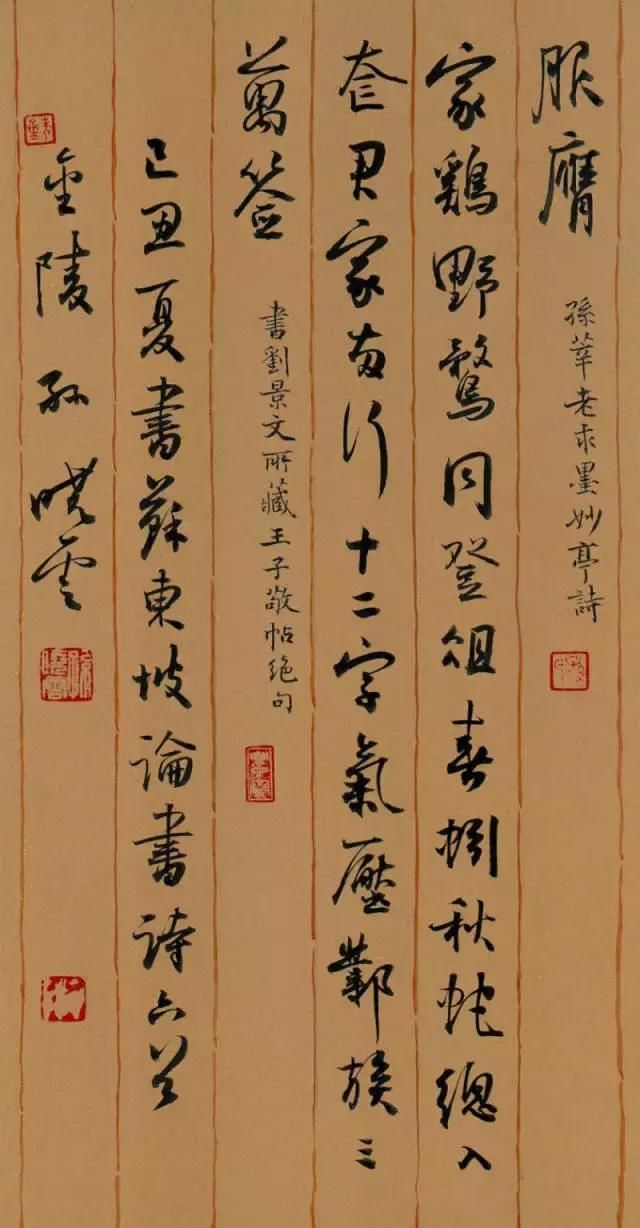 服膺
孫莘老求墨妙亭詩
家鷄野鶩同登俎春蚓秋蛇總入
奩君家兩行十二字氣壓鄴侯三
萬籤
書劉景文所藏王子敬帖絕句
己丑夏書蘇東坡論書詩六首
金陵孫曉雲